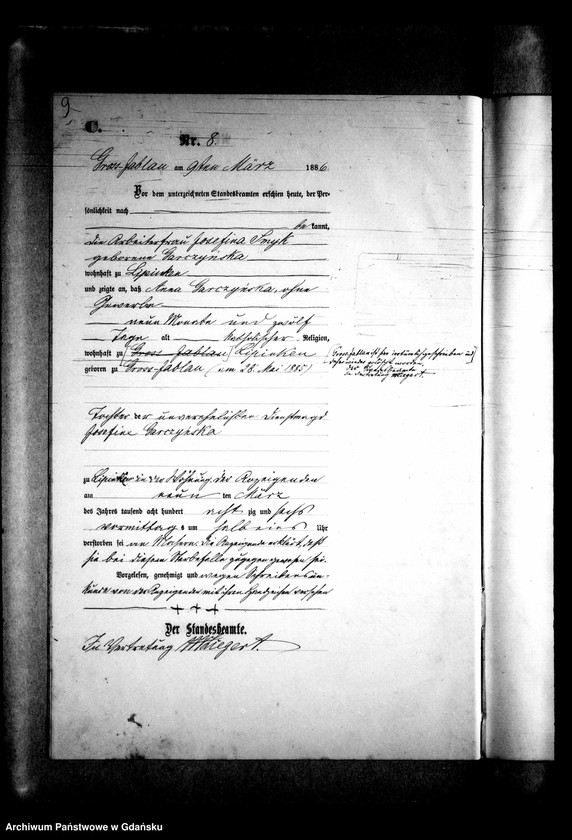 9
C.
Nr. 8.
Gross-Jablau am 9ten März 1886.
Vor dem unterzeichneten Standesbeamten erschien heute, der Per-
sönlichkeit nach
bekannt,
die Arbeiterfrau Josefina Smyk
geborene Garczyńska
wohnhaft zu Lipinken
und zeigte an, daß Anna Garczyńska, ohne
Gewerbe
neun Monate und zwölf
Tage alt katholischer Religion,
wohnhaft zu (Gross Jablau) Lipinken
geboren zu Gross-Jablau (am 28. Mai 1885)
Tochter der unverehelichten Dienstmagd
Josefine Garczyńska
zu Lipinken in der Wohnung der Anzeigenden
am neun ten März
des Jahres tausend acht hundert acht zig und sechs
vormittags um halb eins Uhr
verstorben sei an Masern. Die Anzeigende erklärt, daß
sie bei diesem Sterbefalle zugegen gewesen sei.
Vorgelesen, genehmigt und wegen Schreibensun-
kunde von der Anzeigenden mit ihren Handzeichen versehen
+ + +
Der Standesbeamte.
In Vertretung Wiegert.
Gross Jablau ist hier irrthümlich geschrieben und
gestrichen worden
Der Standesbeamte
In Vertretung Wiegert.
Archiwum Państwowe w Gdańsku